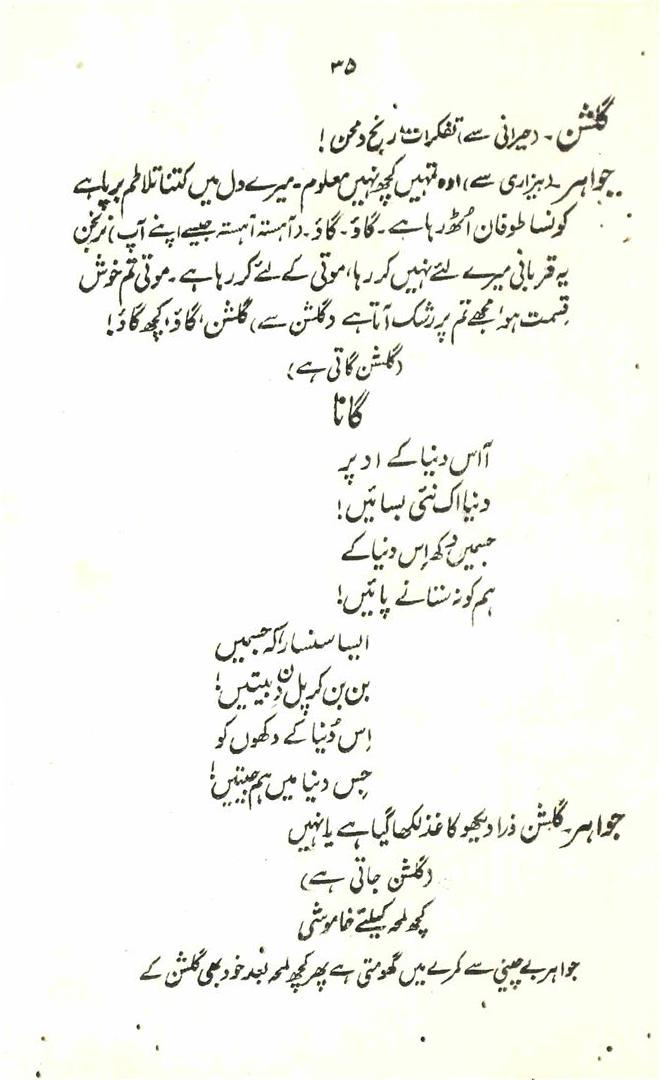 ۳۵
گلشن۔ (حیرانی سے) تفکرات رنج و محن!
جواہر۔ (بیزاری سے) اوہ تمہیں کچھ نہیں معلوم۔ میرے دل میں کتنا تلاطم برپا ہے
کونسا طوفان اُٹھ رہا ہے۔ گاؤ۔ گاؤ۔ (آہستہ آہستہ جیسے اپنے آپ)
یہ قربانی میرے لئے نہیں کر رہا، موتی کے لئے کر رہا ہے۔ موتی تم خوش
قسمت ہو، مجھے تم پر رشک آتا ہے (گلشن سے) گلشن، گاؤ، کچھ گاؤ!
(گلشن گاتی ہے)
گانا
آ اس دنیا کے اوپر
دنیا اک نئی بسائیں!
جسمیں دکھ اِس دنیا کے
ہم کو نہ ستانے پائیں!
ایسا سنسار کہ جسمیں
بن بن کر پل دن بیتیں!
اِس دُنیا کے دکھوں کو
جِس دنیا میں ہم جیتیں!
جواہر۔ گلشن ذرا دیکھو کاغذ لکھا گیا ہے یا نہیں
(گلشن جاتی ہے)
کچھ لمحہ کیلئے خاموشی
جواہر بے چینی سے کمرے میں گھومتی ہے پھر کچھ لمحہ بعد خود بھی گلشن کے